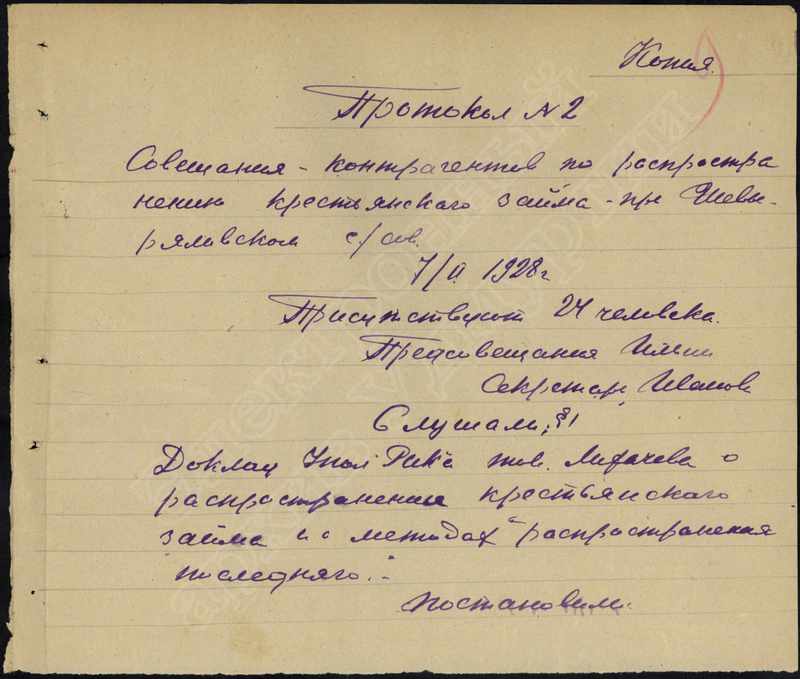 Копия.
Протокол № 2
Совещания - контрагентов по распростра
нению крестьянского займа - при Шевы-
ряловском с/сов.
7/II 1928 г
Присутствуют 24 человека.
Предсовещания
Секретарь Иванов
Слушали; §1
Доклад Упол РИК'а тов. Лихачева о
распространении крестьянского
займа и о методах "распространения
последняго."
Постановили: